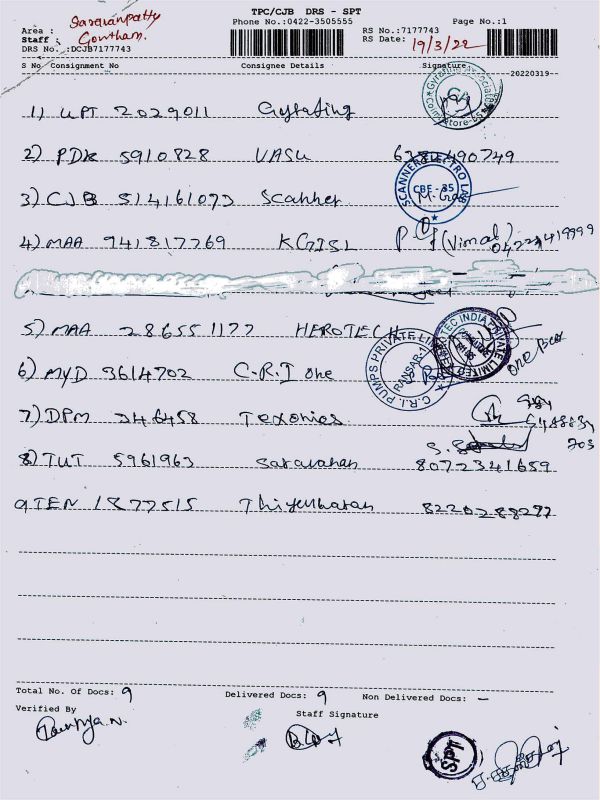 TPC/CJB DRS - SPT
Phone No.:0422-3505555
Page No.:1
Area : Saravanpatty
Staff : Gowtham.
DRS No. :DCJB7177743
RS No.:7177743
RS Date: 19/3/22
S No Consignment No Consignee Details Signature
20220319--
1) UPT 2029011 Gyrating
2) PDK 5910828 VASU
3) CJB 514161073 Scanner
SCANNER ELECTRO LAB
CBE - 35
4) MAA 941817769 KGISL (Vimal)
5) MAA 286551177 HEROTECH
one Box
6) MYD 3614702 C.R.I one
C.R.I. PUMPS PRIVATE LIMITED
7) DPM 246458 Texonics
8) TUT 5961963 Saravanan 8072341659
9 TEN 1877515 8220288297
Total No. Of Docs: 9 Delivered Docs: 9 Non Delivered Docs: -
Verified By Staff Signature
SPT